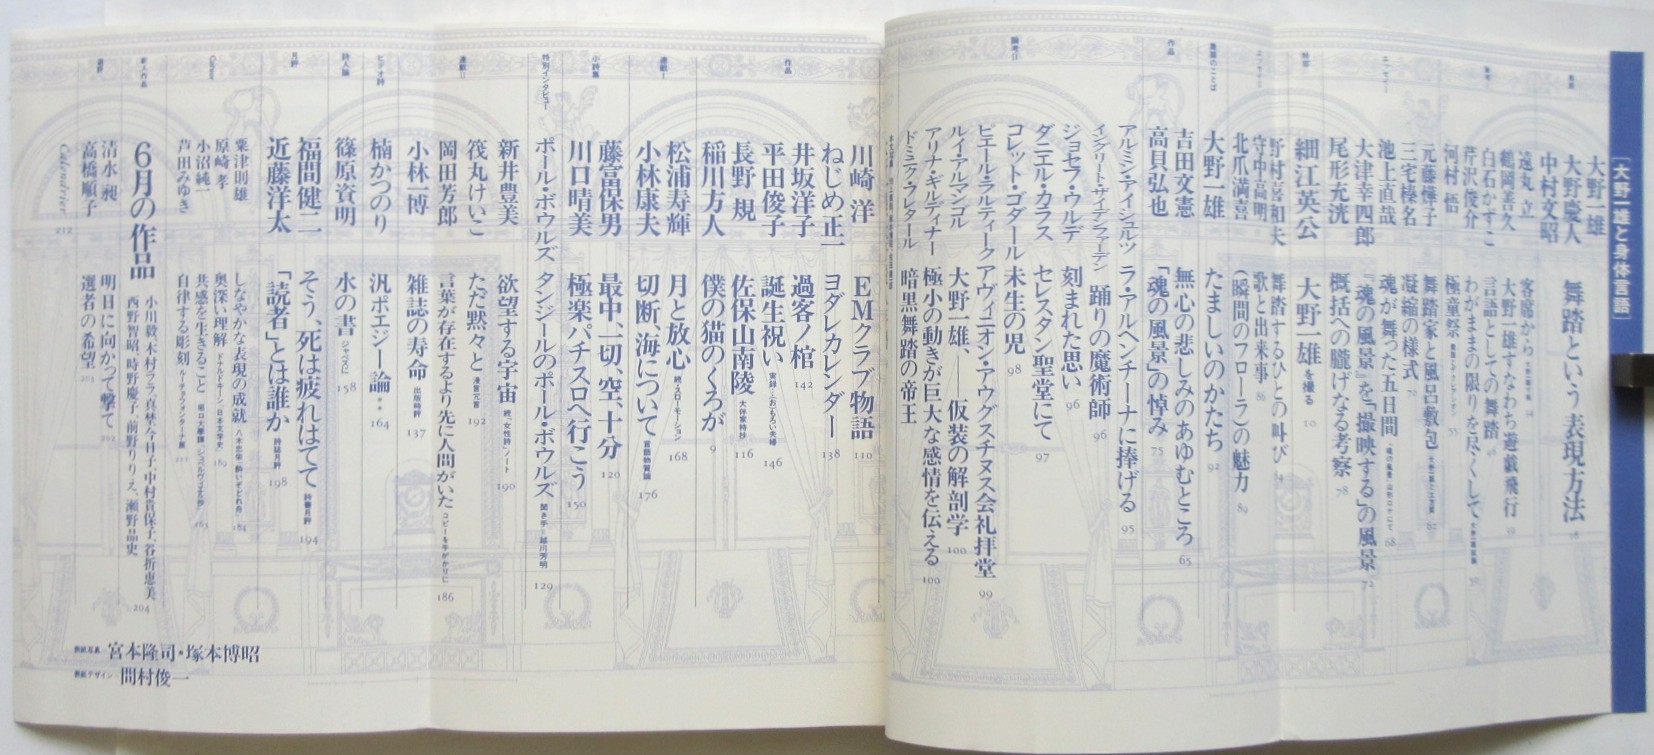 [大野一雄と身体言語]
大野一雄
大野慶人
中村文昭
舞踏という表現方法
遠丸 立 客席から
鶴岡善久 大野一雄すなわち遊戯飛行
白石かずこ 言語としての舞踏
芹沢俊介 わがままの限りを尽くして
河村 悟 極小童祭
元藤燁子 舞踏家と風呂敷包
三宅榛名 凝縮の様式
池上直哉 魂が舞った五日間 68
大津幸四郎 『魂の風景』を「撮映する」の風景 72
尾形充洸 概括への朧げなる考察 78
細江英公 大野一雄を撮る 10
野村喜和夫 舞踏するひとの叫び
守中高明 歌と出来事 86
北爪満喜 (瞬間のフローラ)の魅力 89
大野一雄 たましいのかたち 92
作品
吉田文憲 無心の悲しみのあゆむところ 65
高貝弘也 「魂の風景」の悼み 75
アルミン・アイシュルツ ラ・アルヘンチーナに捧げる 95
イングリート・ザイデンファーデン 踊りの魔術師 96
ジョセフ・ウルデ 刻まれた思い 96
ダニエル・カラス セレスタン聖堂にて 97
コレット・ゴダール 未生の児 98
ピエール・ラルティーク アヴィニオン・アウグスチヌス会礼拝堂 99
ルイ・アルマンゴル 大野一雄、――仮装の解剖学 100
アリナ・ギルディナー 極小の動きが巨大な感情を伝える 100
ドミニク・フレタール 暗黒舞踏の帝王
作品
川崎 洋 EMクラブ物語 110
ねじめ正一 ヨダレカレンダー 138
井坂洋子 過客ノ棺 142
平田俊子 誕生祝い 146
長野 規 佐保山南陵 116
稲川方人 僕の猫のくろが 9
連載I
松浦寿輝 月と放心 続・スローモーション 168
小林康夫 切断、海について 176
小詩集
藤富保男 最中、一切、空、十分 120
川口晴美 極楽パチスロへ行こう 150
特別インタビュー
ポール・ボウルズ タンジールのポール・ボウルズ 聞き手=越川芳明 129
連載II
新井豊美 欲望する宇宙 続・「女性詩」ノート 190
筏丸けいこ ただ黙々と 192
岡田芳郎 言葉が存在するより先に人間がいた コピーを手がかりに 186
小林一博 雑誌の寿命 出版時評 137
ビデオ詩
楠かつのり 汎ポエジー論 164
詩人論
篠原資明 水の書 ジャベスに 158
月評
福間健二 そう、死は疲れはてて 詩書月評 194
近藤洋太 「読者」とは誰か 詩誌月評 198
粟津則雄 しなやかな表現の成就 184
原崎 孝 奥深い理解 ドナルド・キーン『日本文学史』 189
小沼純一 共感を生きること 163
芦田みゆき 自律する彫刻
新人作品
6月の作品 小川毅、木村フラ、真埜今日子、中村貴保子、谷折恵美
西野智昭、時野慶子、前野りりえ、瀬野晶史 204
選評
清水 昶 明日に向かって撃て 202
高橋順子 選者の希望 203
Calendrier 212
表紙写真・宮本隆司・塚本博昭
表紙デザイン・間村俊一